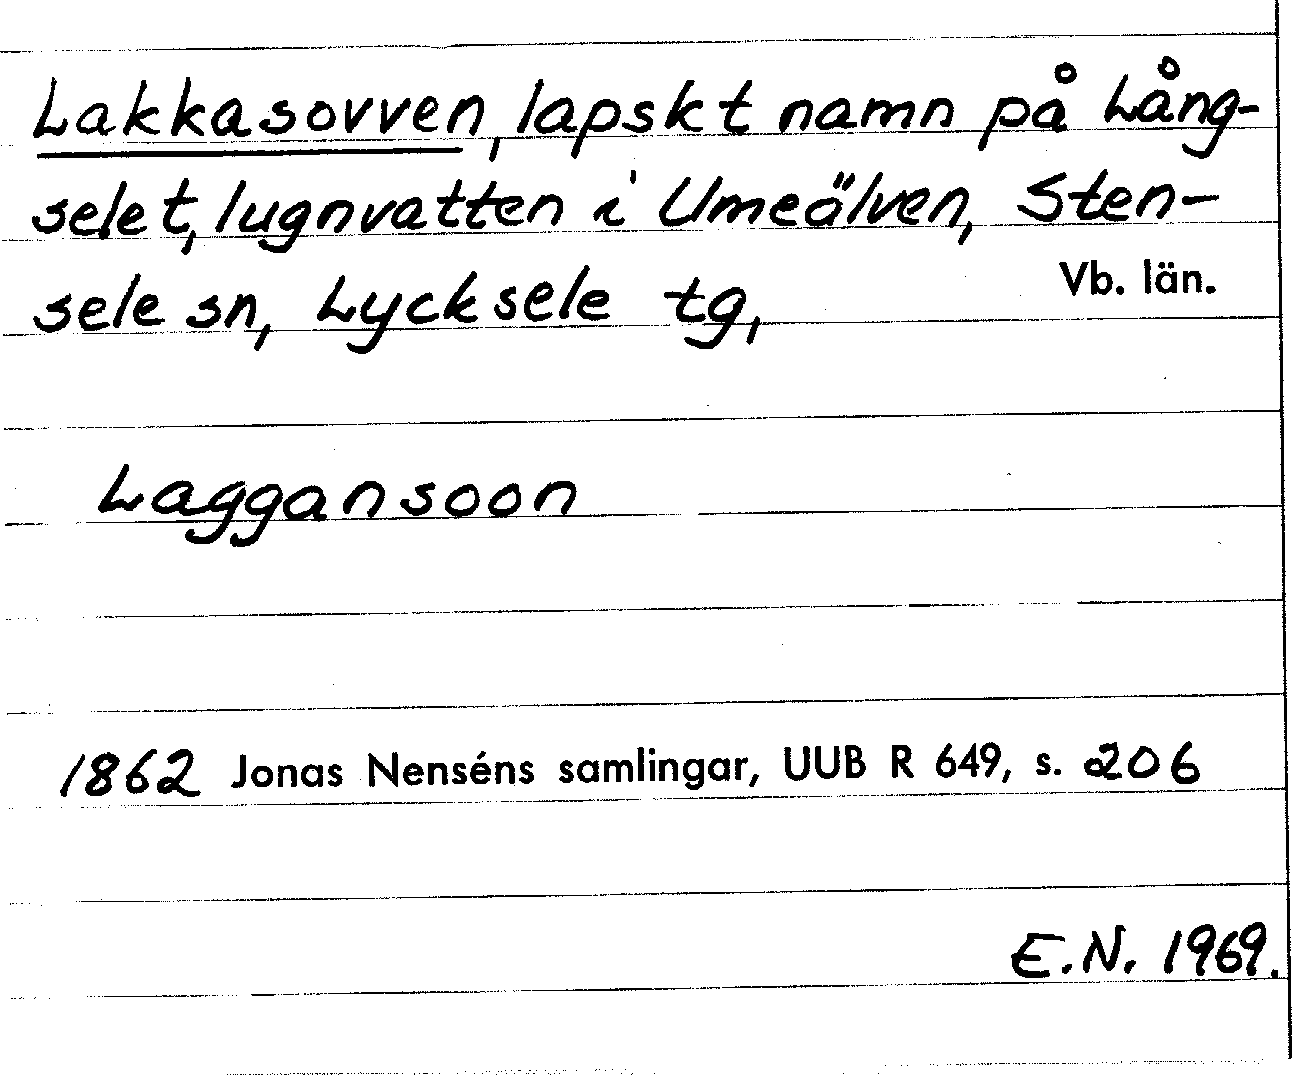 Lakkasovven, lapskt namn på Lång-
selet, lugnvatten i Umeälven, Sten-
sele sn, Lycksele tg, Vb. län.
Laggansoon
1862 Jonas Nenséns samlingar, UUB R 649, s. 206
E.N. 1969.